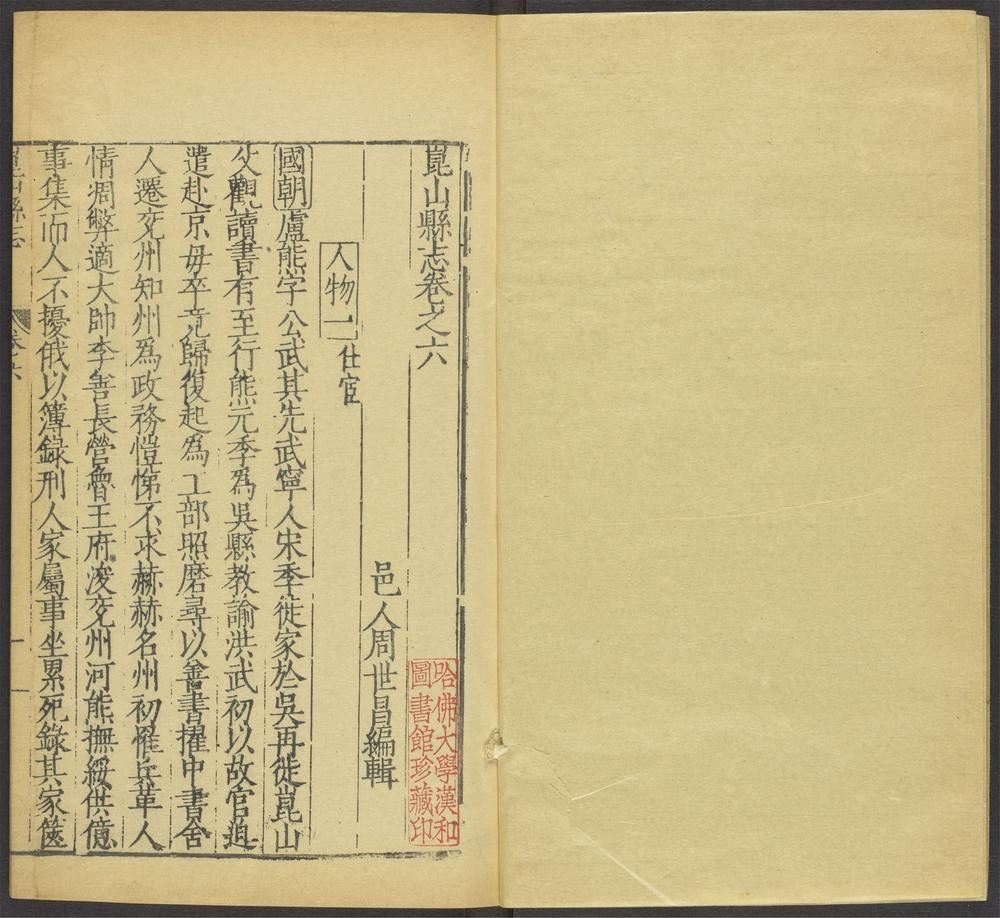 崑山縣志卷之六
邑人周世昌編輯
人物一 仕宦
國朝盧熊字公武其先武寧人宋季徙家於吳再徙崑山
父觀讀書有至行熊元季為吳縣教諭洪武初以故官迫
遣赴京毋卒竟歸復起為工部照磨尋以善書擢中書舍
人遷兗州知州為政務愷悌不求赫赫名州初罹兵革人
情凋弊適大帥李善長營魯王府浚兗州河熊撫綏供億
事集而人不擾俄以簿錄刑人家屬事坐累死錄其家篋
崑山縣志 卷之六 一
哈佛大學漢和
圖書館珍藏印